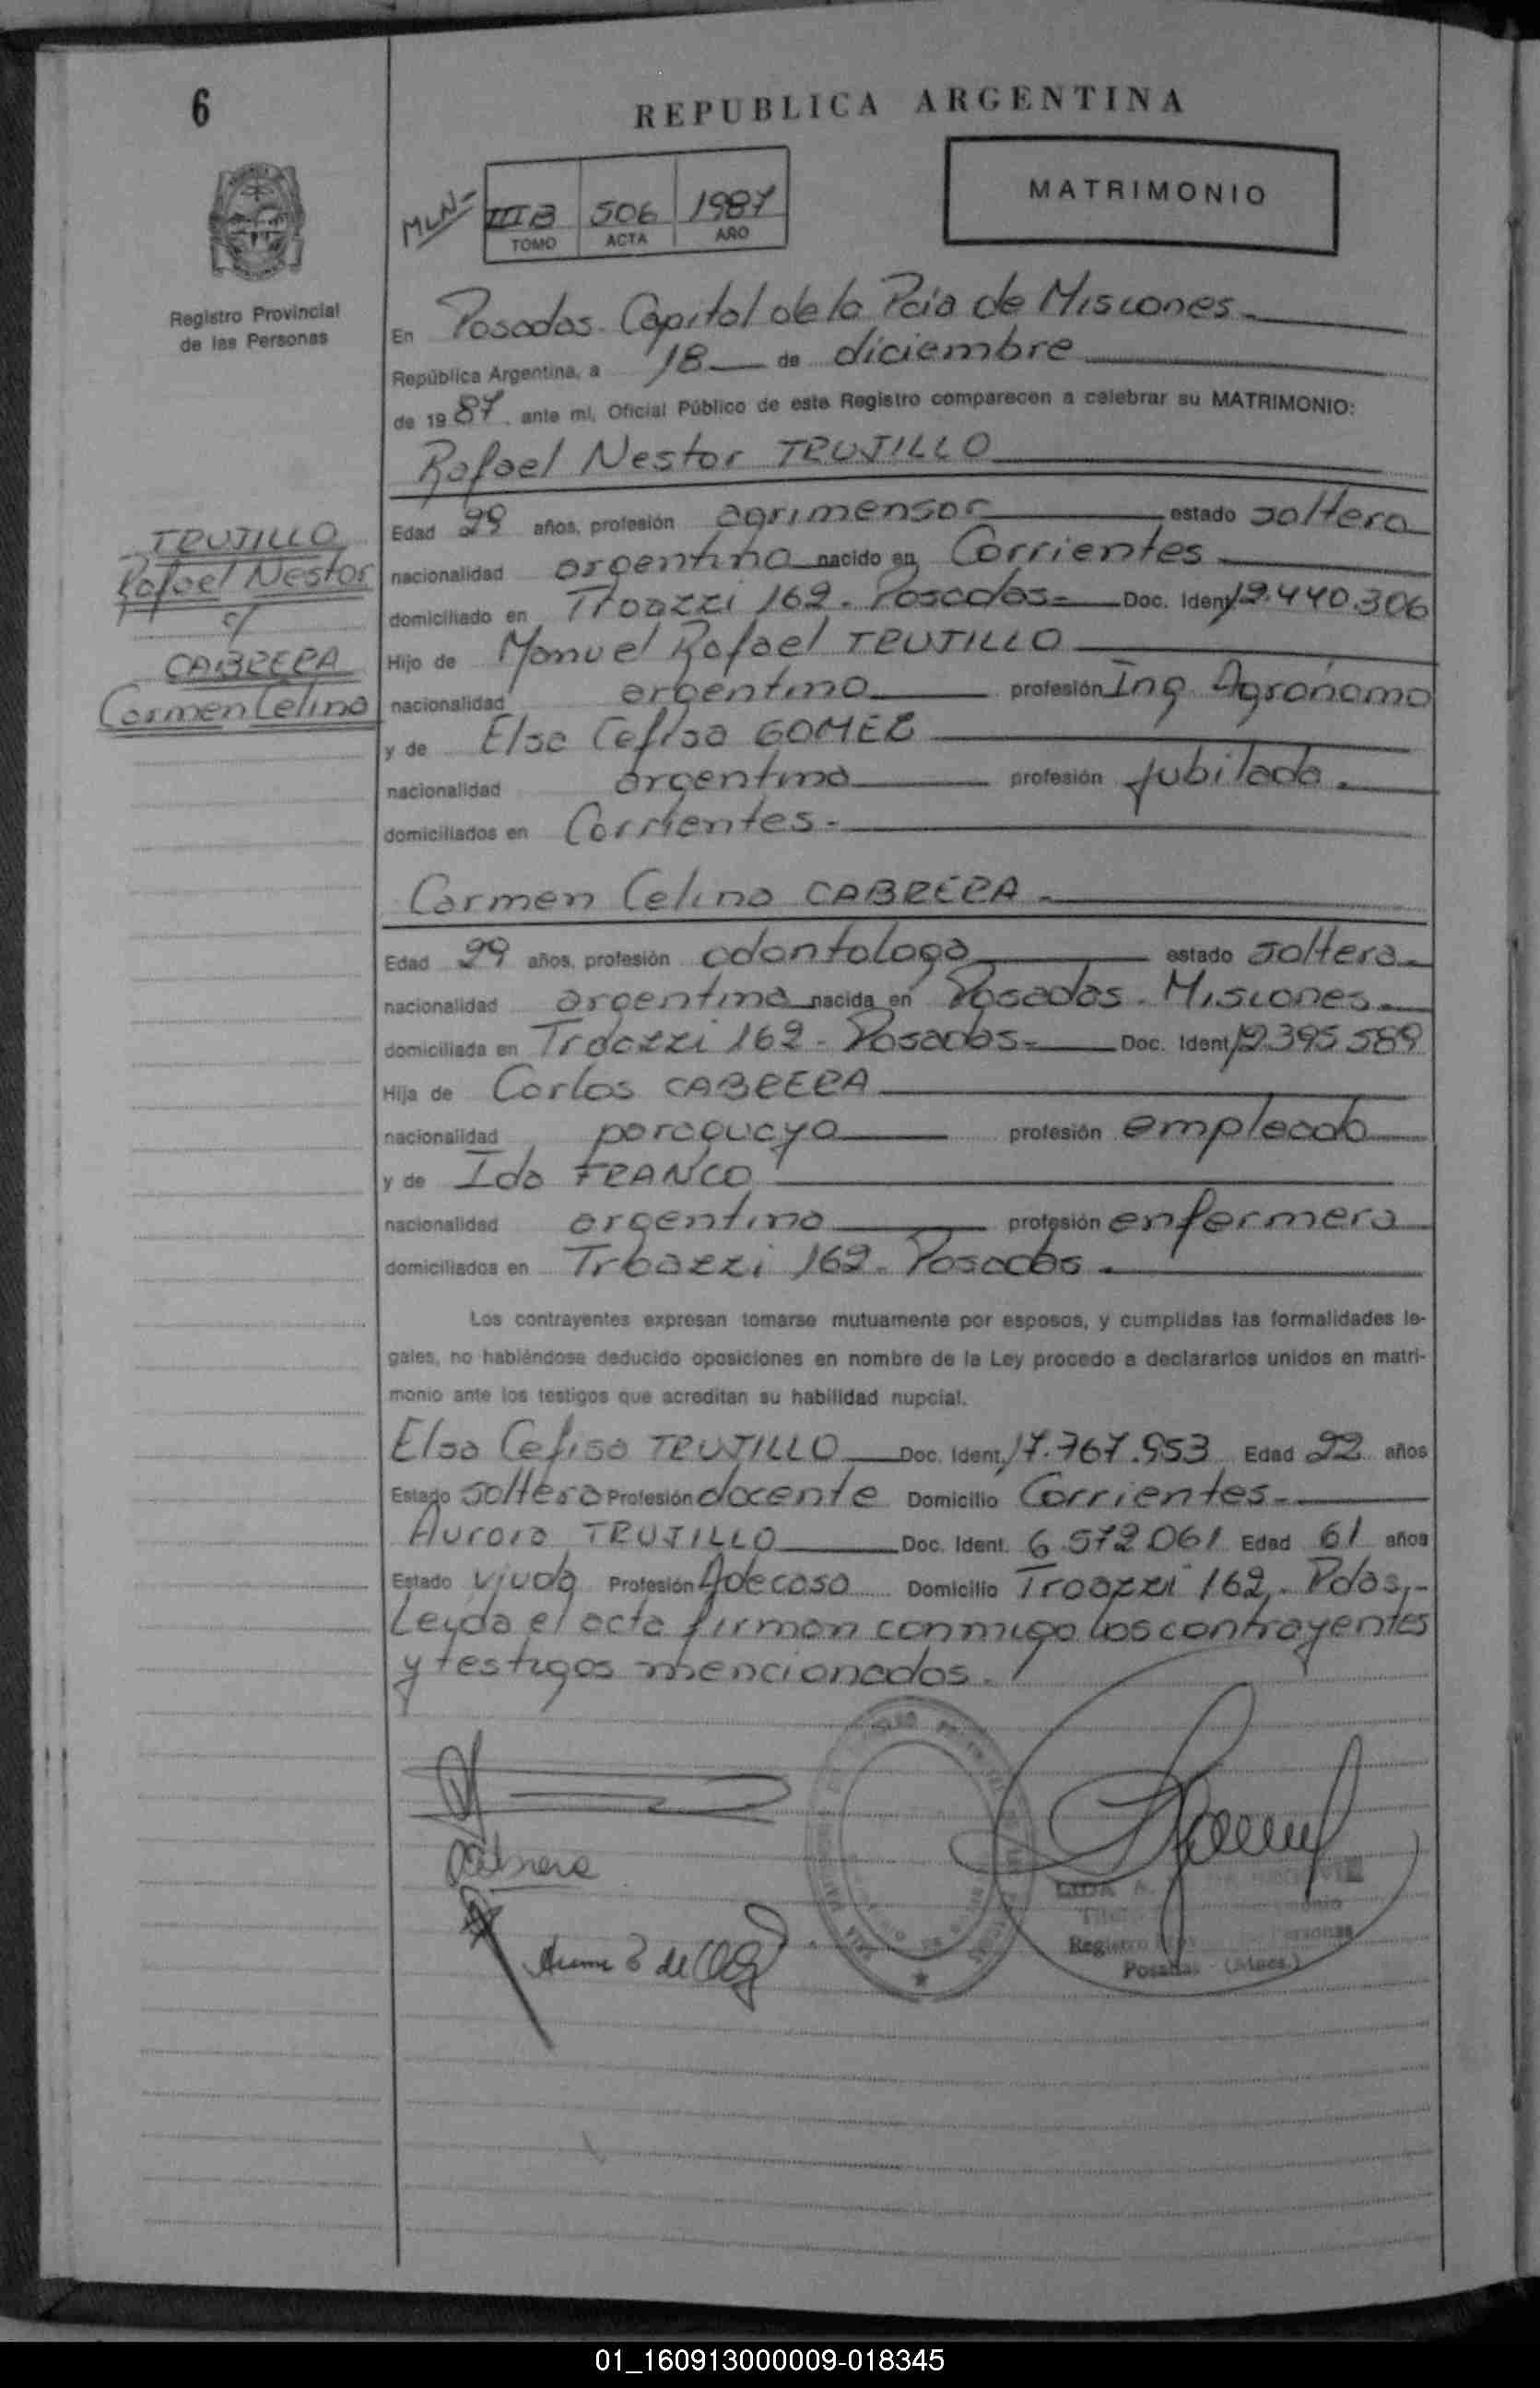 6
REPUBLICA ARGENTINA
MATRIMONIO
MLN=
IIIB 506 1987
TOMO ACTA AÑO
Registro Provincial
de las Personas
En Posadas. Capital de la Pcia de Misiones.
República Argentina, a 18 de diciembre
de 1987, ante mí, Oficial Público de este Registro comparecen a celebrar su MATRIMONIO:
Rafael Nestor TRUJILLO
TRUJILLO
Rafael Nestor
c/
CABRERA
Carmen Celina
Edad 29 años, profesión agrimensor estado soltero
nacionalidad argentina nacido en Corrientes
domiciliado en 162. Posadas= Doc. Ident 12.440.306
Hijo de Manuel Rafael TRUJILLO
nacionalidad argentina profesión Ing Agrónomo
y de Elsa Cefisa GOMEZ
nacionalidad argentina profesión jubilada.
domiciliados en Corrientes.
Carmen Celina CABRERA.
Edad 29 años, profesión odontologa estado soltera.
nacionalidad argentina nacida en Posadas. Misiones.
domiciliada en 162 - Posadas= Doc. Ident 12395589
Hija de Carlos CABRERA
nacionalidad paraguaya profesión empleado
y de Ida FRANCO
nacionalidad argentina profesión enfermera
domiciliados en 162. Posadas.
Los contrayentes expresan tomarse mutuamente por esposos, y cumplidas las formalidades le-
gales, no habiéndose deducido oposiciones en nombre de la Ley procedo a declararlos unidos en matri-
monio ante los testigos que acreditan su habilidad nupcial.
Elsa Cefisa TRUJILLO Doc. Ident. 17.767.953 Edad 22 años
Estado soltera Profesión docente Domicilio Corrientes.
Aurora TRUJILLO Doc. Ident. 6.572.061 Edad 61 años
Estado viuda Profesión Adecasa Domicilio 162. Pdas,-
Leida el acta firman conmigo los contrayentes
y testigos mencionados.
Cabrera
LIDA A.
Registro
Posadas (Mnes.)
01_160913000009-018345